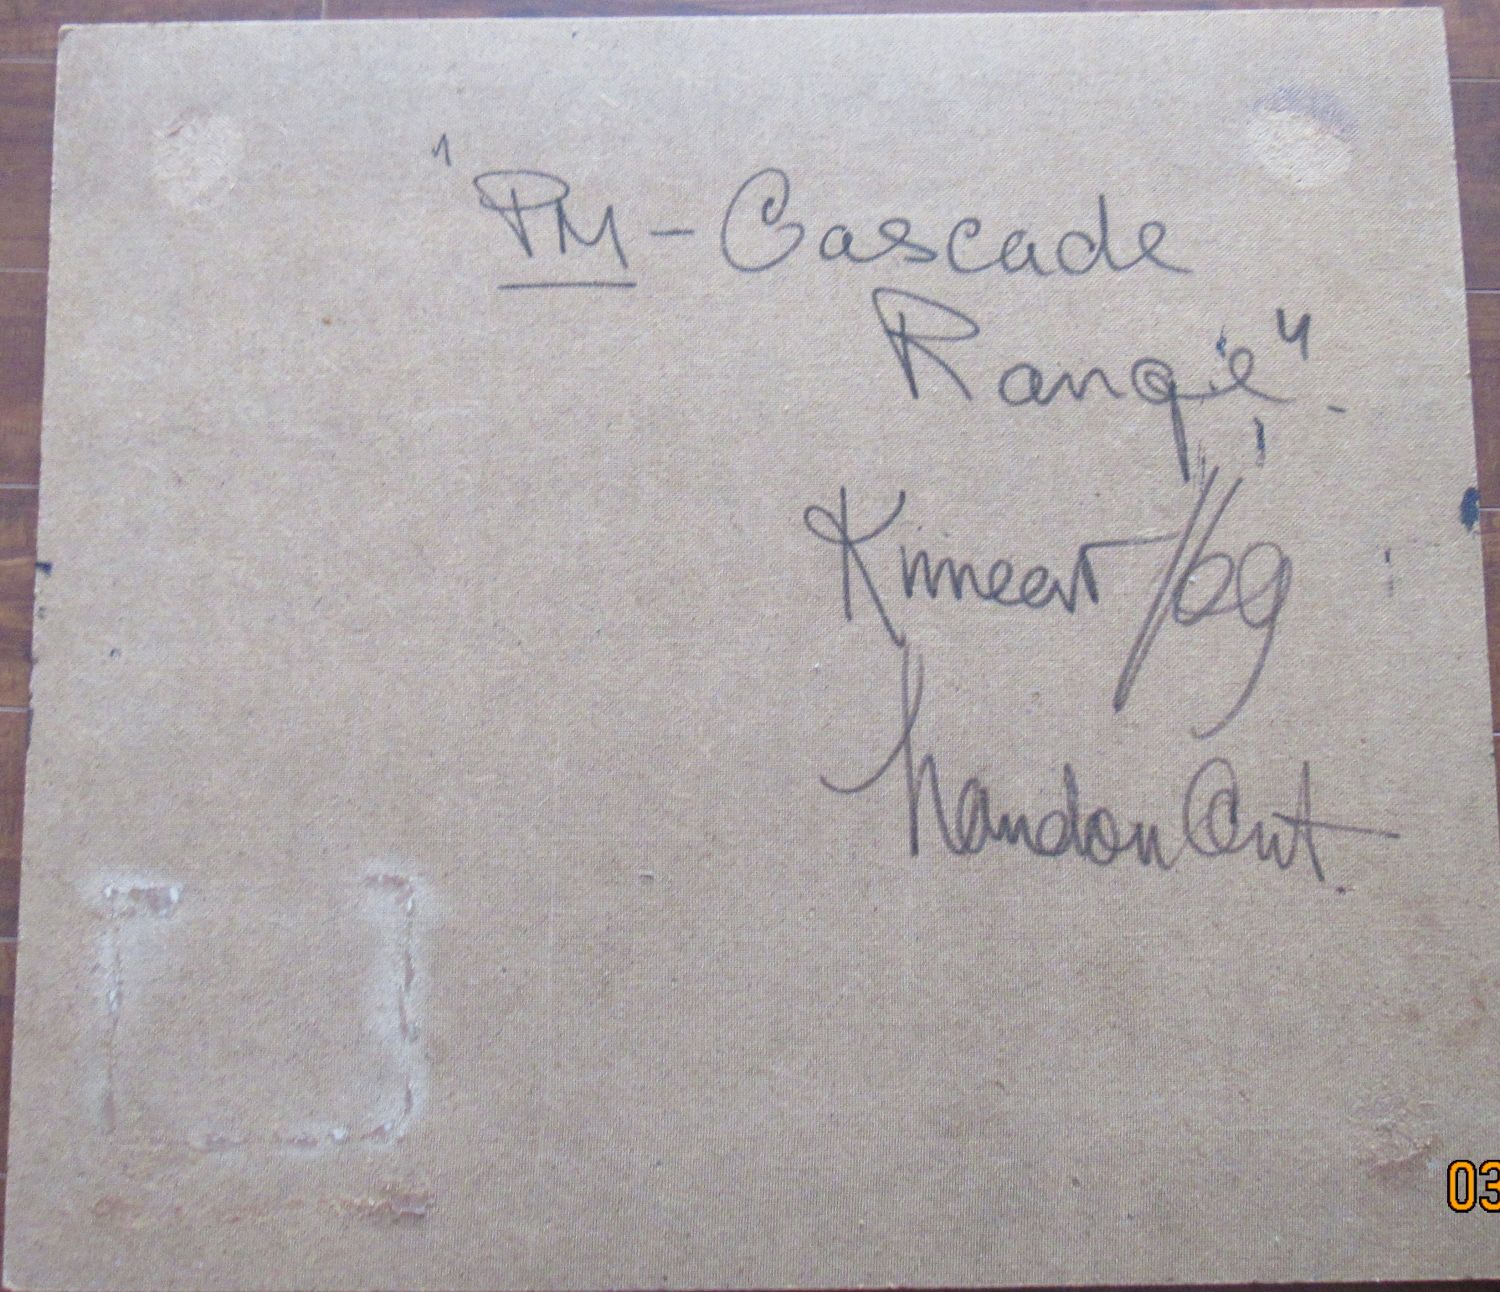 "PM - Cascade
Range".
Kinnear/69
London Ont.
03